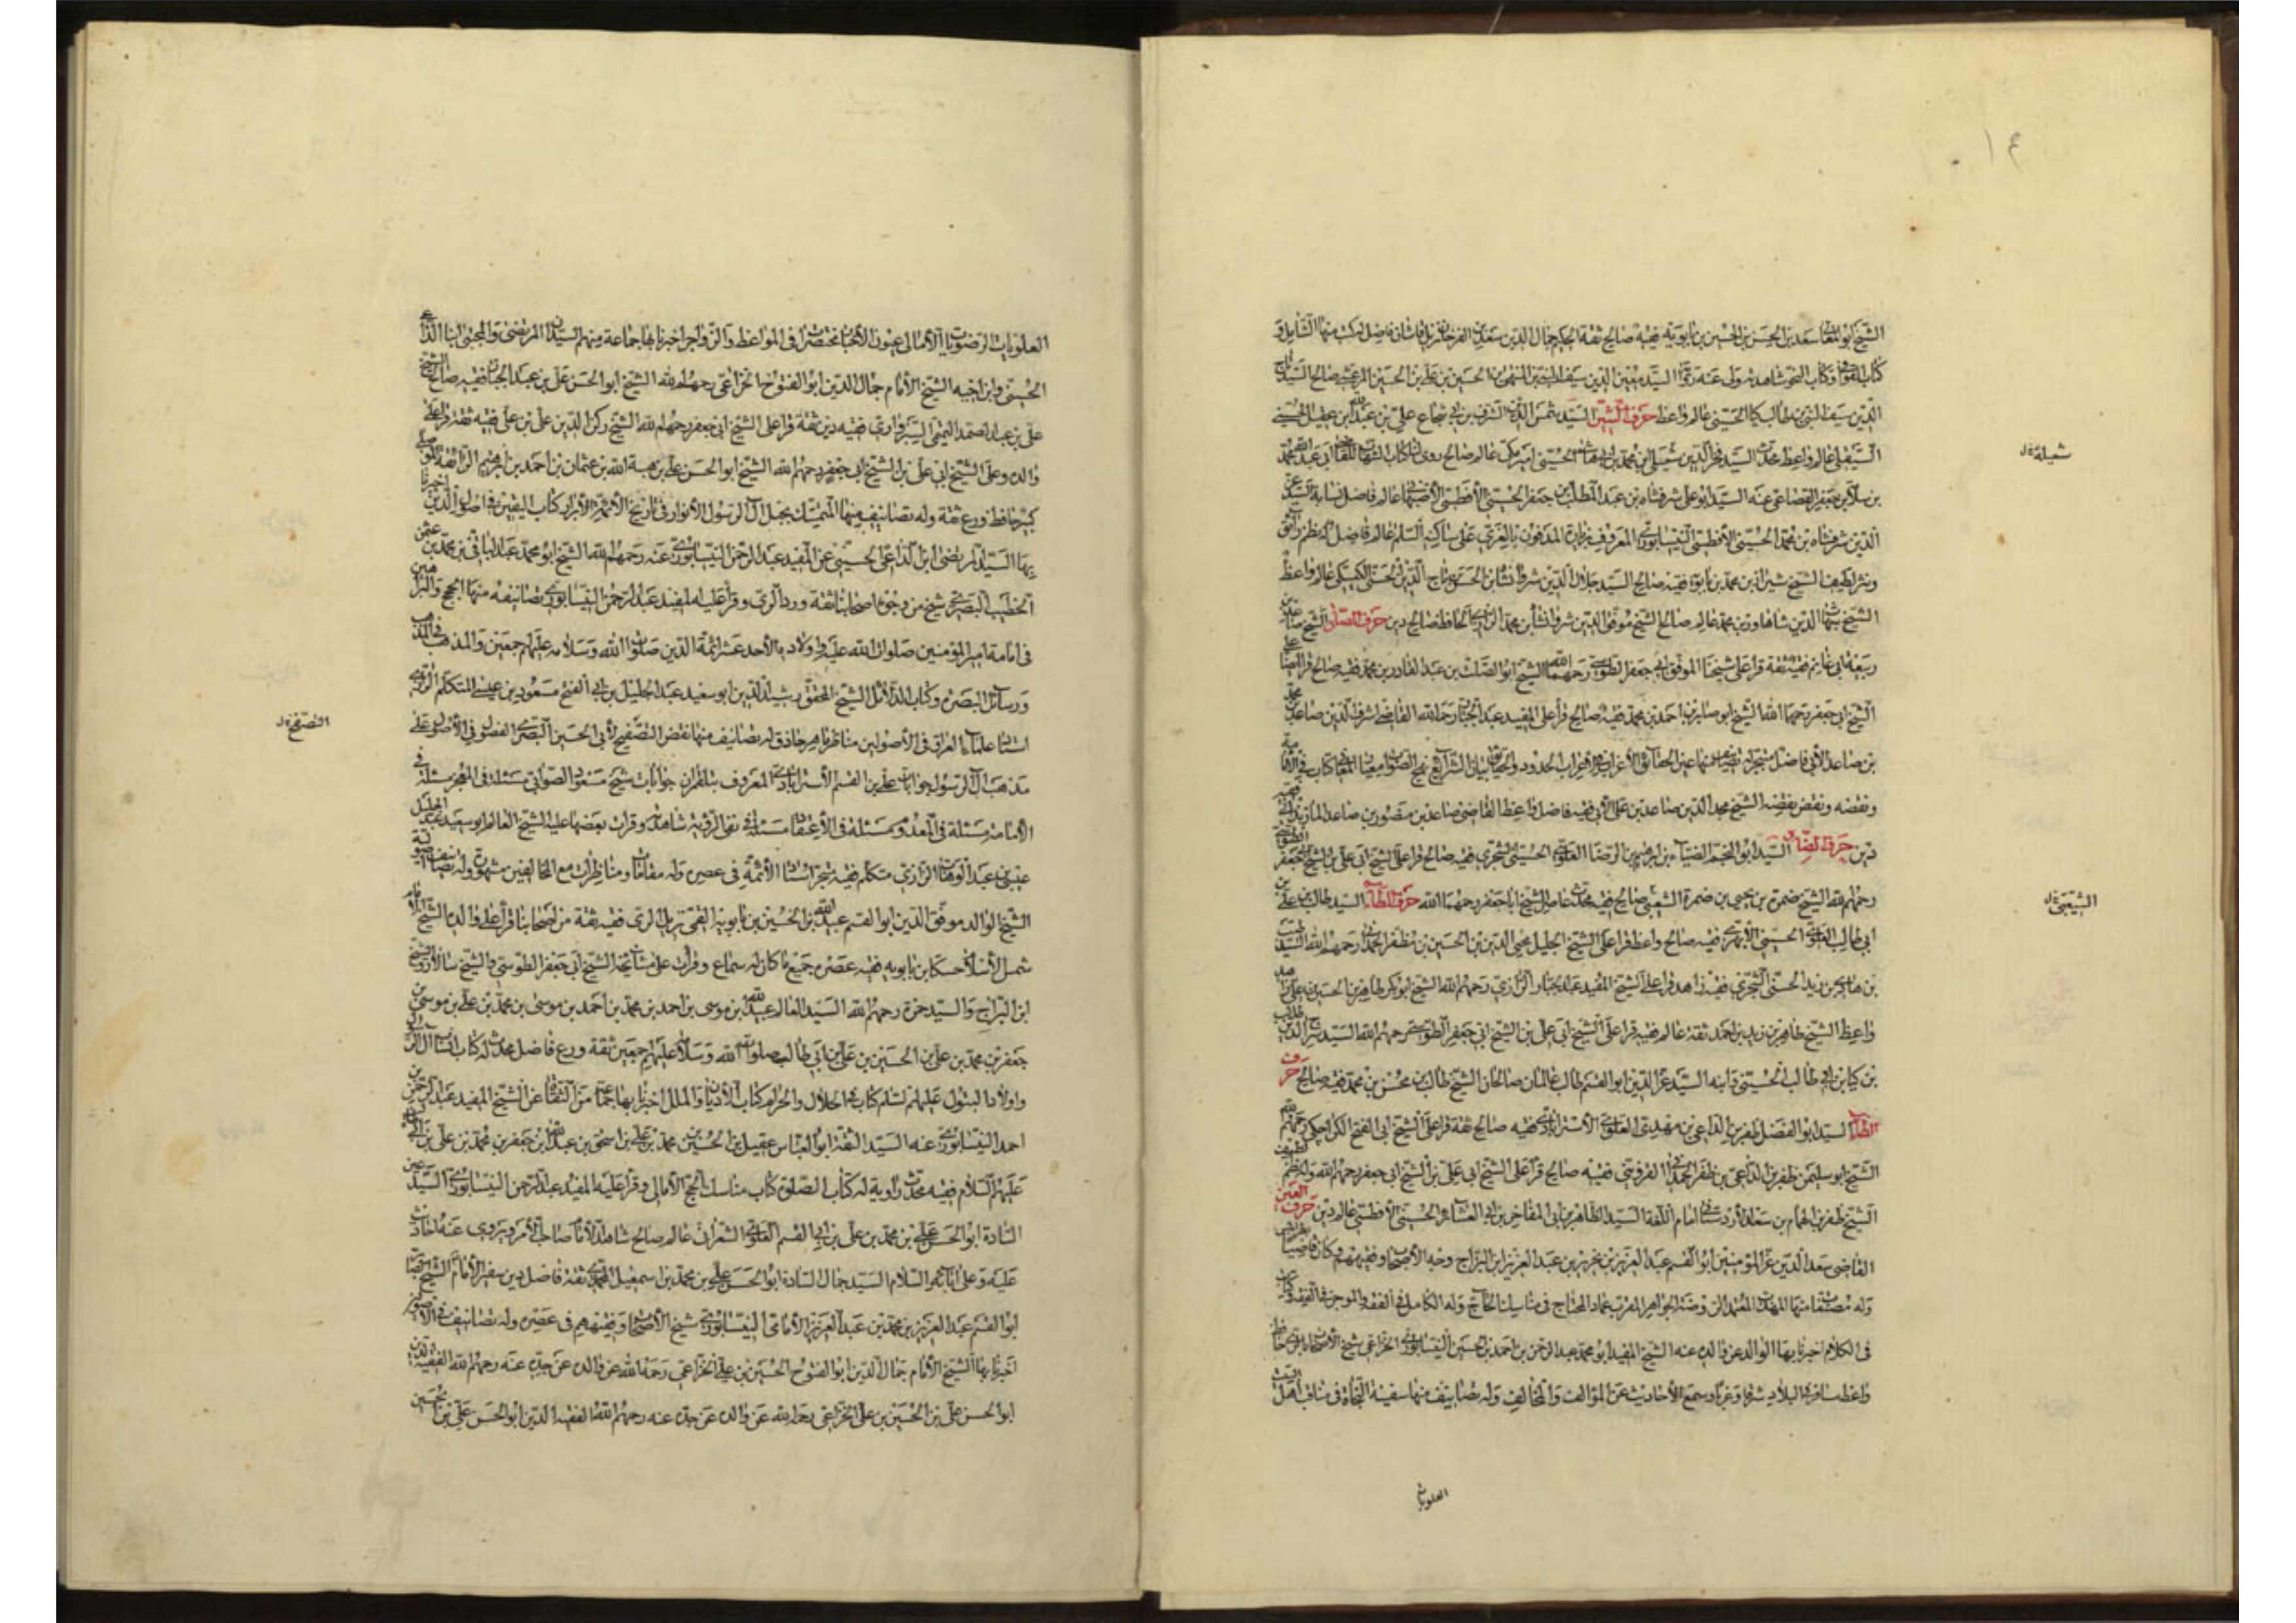 ١٤
الشيخ ابو المعالي سعد بن الحسن بن الحسين بن بابويه فقيه صالح ثقة الحكيم جمال الدين سعد بن الفرخان نزيل قاشان فاضل له كتب منها الشامل و
كتاب القوافي وكتاب النحو شاهدته ولى عنه السيد معين الدين سيف بن الحسين بن علي بن الحسين المرعشي صالح السيد
الدين سيف النبي بن طالب كيا الحسيني عالم واعظ حرف الشين السيد شمس الدين شرف بن ابي شجاع علي بن عبدالله بن عقيل الحسيني
السيلقي عالم واعظ محدث السيد فخر الدين شميلة بن محمد بن ابي هاشم الحسيني امير مكة عالم صالح روى لنا كتاب الشهاب للقاضي ابي عبدالله محمد
شميلة
بن سلامة بن جعفر القضاعي عنه السيد ابو علي شرفشاه بن عبد المطلب بن جعفر الحسيني الأفطسي الأصبهاني عالم فاضل نسابة السيد عز
الدين شرفشاه بن محمد الحسيني الأفطسي النيسابوري المعروف بزيارة المدفون بالغري على ساكنه السلم عالم فاضل له نظم رائق
ونثر لطيف الشيخ شيرزاد بن محمد بن بابويه فقيه صالح السيد جلال الدين شرفشاه بن الحسيني الكيسكي عالم واعظ
الشيخ الدين شاهاور بن محمد عالم صالح الشيخ موفق الدين شروانشاه بن محمد الرازي الحافظ صالح دين حرف الصاد الشيخ صاعد بن
ربيعة بن ابي غانم فقيه ثقة قرأ على شيخنا الموفق ابي جعفر الطوسي رحمهما الله الشيخ ابو الصلت بن عبد القادر بن محمد فقيه صالح قرأ ايضا على
الشيخ ابي جعفر رحمهما الله الشيخ ابو صابر بن احمد بن محمد فقيه صالح قرأ على المفيد عبد الجبار رحمه الله القاضي اشرف الدين صاعد بن محمد
بن صاعد الآبي فاضل متبحر له تصانيف منها عين الحقايق الأغراب في الإعراب الحدود والحقايق بيان الشرايع نهج الصواب معيار المعاني كتاب في الإمامة
ونقضه ونقض نقضه الشيخ مجد الدين صاعد بن علي الآبي فقيه فاضل واعظ القاضي صاعد بن منصور بن صاعد المازندراني فقيه
دين حرف الضاد السيد ابو النجم الضياء بن ابرهيم بن الرضا العلوي الحسيني الشجري فقيه صالح قرأ على الشيخ ابي علي بن الشيخ ابي جعفر الطوسي
رحمهم الله الشيخ ضمرة بن يحيى بن ضمرة الشعيبي صالح فقيه محدث عاصر الشيخ ابا جعفر رحمهما الله حرف الطاء السيد طالب بن علي بن
الشعيبي
ابي طالب العلوي الحسيني الأبهري فقيه صالح واعظ قرأ على الشيخ الجليل محيي الدين بن الحسين بن مظفر الحمداني رحمهم الله السيد طيب
بن هادي بن زيد الحسني الشجري فقيه زاهد قرأ على الشيخ المفيد عبد الجبار الرازي رحمهم الله الشيخ ابو بكر طاهر بن الحسين بن علي صالح
واعظ الشيخ طاهر بن زيد بن احمد ثقة عالم فقيه قرأ على الشيخ ابي علي بن الشيخ ابي جعفر الطوسي رحمهم الله السيد تاج الدين طالب
بن كيا بن ابي طالب الحسيني وابنه السيد عز الدين ابو القسم طالب عالمان صالحان الشيخ طالب بن محسن بن محمد فقيه صالح حرف
الظاء السيد ابو الفضل ظفر بن الداعي بن مهدي العلوي الأسترابادي فقيه صالح ثقة قرأ على الشيخ ابي الفتح الكراجكي رحمهم الله
الشيخ ابو سليمن ظفر بن الداعي بن ظفر الحمداني القزويني فقيه صالح قرأ على الشيخ ابي علي بن الشيخ ابي جعفر رحمهم الله وله نظم لطيف
الشيخ ظفر بن الهمام بن سعد الأردستاني امام اللغة السيد الظاهر بن ابي المفاخر بن ابي العشاير الحسيني الأفطسي عالم دين حرف العين
القاضي سعد الدين عز المؤمنين ابو القسم عبد العزيز بن نحرير بن عبد العزيز بن البراج وجه الأصحاب وفقيههم وكان قاضيا بطرابلس
وله مصنفات منها المهذب المعتمد الروضة الجواهر المقرب عماد المحتاج في مناسك الحاج وله الكامل في الفقه والموجز في الفقه وكتاب
في الكلام اخبرنا بها الوالد عن والده عنه الشيخ المفيد ابو محمد عبد الرحمن بن احمد بن الحسين النيسابوري الخزاعي شيخ الأصحاب بالري حافظ
واعظ سافر في البلاد شرقا وغربا وسمع الأحاديث عن المؤالف والمخالف وله تصانيف منها سفينة النجاة في مناقب اهل البيت
العلويات
العلويات الرضويات الأمالي عيون الأخبار مختصرات في المواعظ والزواجر اخبرنا بها جماعة منهم السيدان المرتضى والمجتبى ابنا الداعي
الحسني وابن اخيه الشيخ الأمام جمال الدين ابو الفتوح الخزاعي رحمهم الله الشيخ ابو الحسن علي بن عبد الجبار فقيه صالح الشيخ
علي بن عبد الصمد التميمي السبزواري فقيه دين ثقة قرأ على الشيخ ابي جعفر رحمهم الله الشيخ ركن الدين علي بن علي فقيه ثقة قرأ على
والده وعلى الشيخ ابي علي بن الشيخ ابي جعفر رحمهم الله الشيخ ابو الحسن علي بن هبة الله بن عثمان بن احمد بن ابرهيم الرائقة الموصلي
كبير حافظ ورع ثقة وله تصانيف منها المتمسك بحبل آل الرسول الأنوار في تاريخ الأئمة الأبرار كتاب اليقين في اصول الدين اخبرنا
بها السيد المرتضى ابن الداعي الحسيني عن المفيد عبد الرحمن النيسابوري عنه رحمهم الله الشيخ ابو محمد عبد الباقي بن محمد بن عثمن
الخطيب البصري شيخ من وجوه اصحابنا ثقة ورد الري وقرأ عليه المفيد عبد الرحمن النيسابوري تصانيفه منها الحجج والبراهين
في امامة امير المؤمنين صلوات الله عليه واولاده الأحد عشر ائمة الدين صلوات الله وسلامه عليهم اجمعين والمذهب في المذهب
ورسائل البصرة وكتاب الدلائل الشيخ المحقق رشيد الدين ابو سعيد عبد الجليل بن ابي الفتح مسعود بن عيسى المتكلم الرازي
استاد علماء العراق في الأصولين مناظر ماهر حاذق له تصانيف منها نقض التصفح لأبي الحسين البصري الفصول في الأصول على
التصفح
مذهب آل الرسول جوابات علي بن القسم الأسترابادي المعروف ببلقران جوابات شيخ مسعود الصوابي مسئلة في المعجز مسئلة في
الأمامة مسئلة في المعدوم مسئلة في الأعتقاد مسئلة في نفي الرؤية شاهدته وقرأت بعضها عليه الشيخ العالم ابو سعيد عبد الجليل بن
عيسى بن عبد الوهاب الرازي متكلم فقيه متبحر استاد الأئمة في عصره وله مقامات ومناظرات مع المخالفين مشهورة وله تصانيف اصولية
الشيخ الوالد موفق الدين ابو القسم عبيد الله بن الحسن بن الحسين بن بابويه القمي نزيل الري فقيه ثقة من اصحابنا قرأ على والده الشيخ الأمام
شمس الأسلام حسكا بن بابويه فقيه عصره جميع ما كان له سماع وقرأت على مشايخه الشيخ ابي جعفر الطوسي والشيخ سالار والشيخ
ابن البراج والسيد حمزة رحمهم الله السيد العالم عبيد الله بن موسى بن احمد بن محمد بن احمد بن موسى بن محمد بن علي بن موسى بن
جعفر بن محمد بن علي بن الحسين بن علي بن ابي طالب صلوات الله وسلامه عليهم اجمعين ثقة ورع فاضل محدث له كتاب انساب آل الرسول
واولاد البتول عليهم السلم كتاب في الحلال والحرام كتاب الأديان والملل اخبرنا بها جماعة من الثقات عن الشيخ المفيد عبد الرحمن بن
احمد النيسابوري عنه السيد الثقة ابو العباس عقيل بن الحسين بن محمد بن علي بن اسحق بن عبدالله بن جعفر بن محمد بن علي بن ابي طالب
عليهم السلام فقيه محدث راوية له كتاب الصلوة كتاب مناسك الحج الأمالي وقرأ عليه المفيد عبد الرحمن النيسابوري السيد عين
السادة ابو الحسن علي بن محمد بن علي بن ابي القسم العلوي الشعراني عالم صالح شاهد الأمام صاحب الأمر ويروى عنه احاديث
عليه وعلى آبائه السلام السيد جمال السادة ابو الحسن علي بن محمد بن اسمعيل المحمدي ثقة فاضل دين سفير الأمام الشيخ
ابو القسم عبد العزيز بن محمد بن عبد العزيز الأمامي النيسابوري شيخ الأصحاب وفقيههم في عصره وله تصانيف في الأصولين
اخبرنا بها الشيخ الأمام جمال الدين ابو الفتوح الحسين بن علي الخزاعي رحمه الله عن والده عن جده عنه رحمهم الله الفقيه
ابو الحسن علي بن الحسين بن علي الخزاعي رحمه الله عن والده عن جده عنه رحمهم الله الفقيه الدين ابو الحسن علي بن الحسين